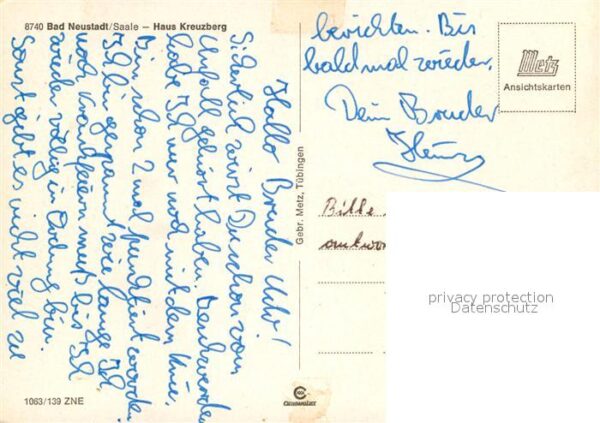 8740 Bad Neustadt/Saale — Haus Kreuzberg
Hallo Bruder Udo!
Sicherlich wirst Du schon vom
Unfall gehört haben. Beschwerden
habe Ich nur noch mit dem Knie.
Bin schon 2 mal punktiert worden.
Ich bin gespannt wie lange Ich
noch krankfeiern muß bis Ich
wieder völlig in Ordnung bin.
Sonst gibt es nicht viel zu
berichten. Bis
bald mal wieder.
Dein Bruder
Metz
Ansichtskarten
Gebr. Metz, Tübingen
Bitte
antwor
privacy protection
Datenschutz
1063/139 ZNE